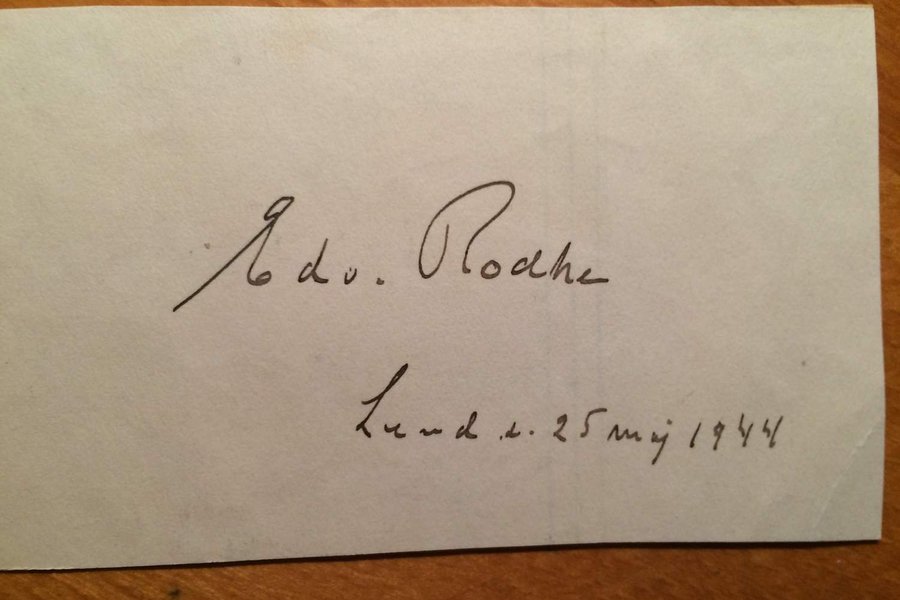 Edv. Rodhe
Lund d. 25 maj 1944